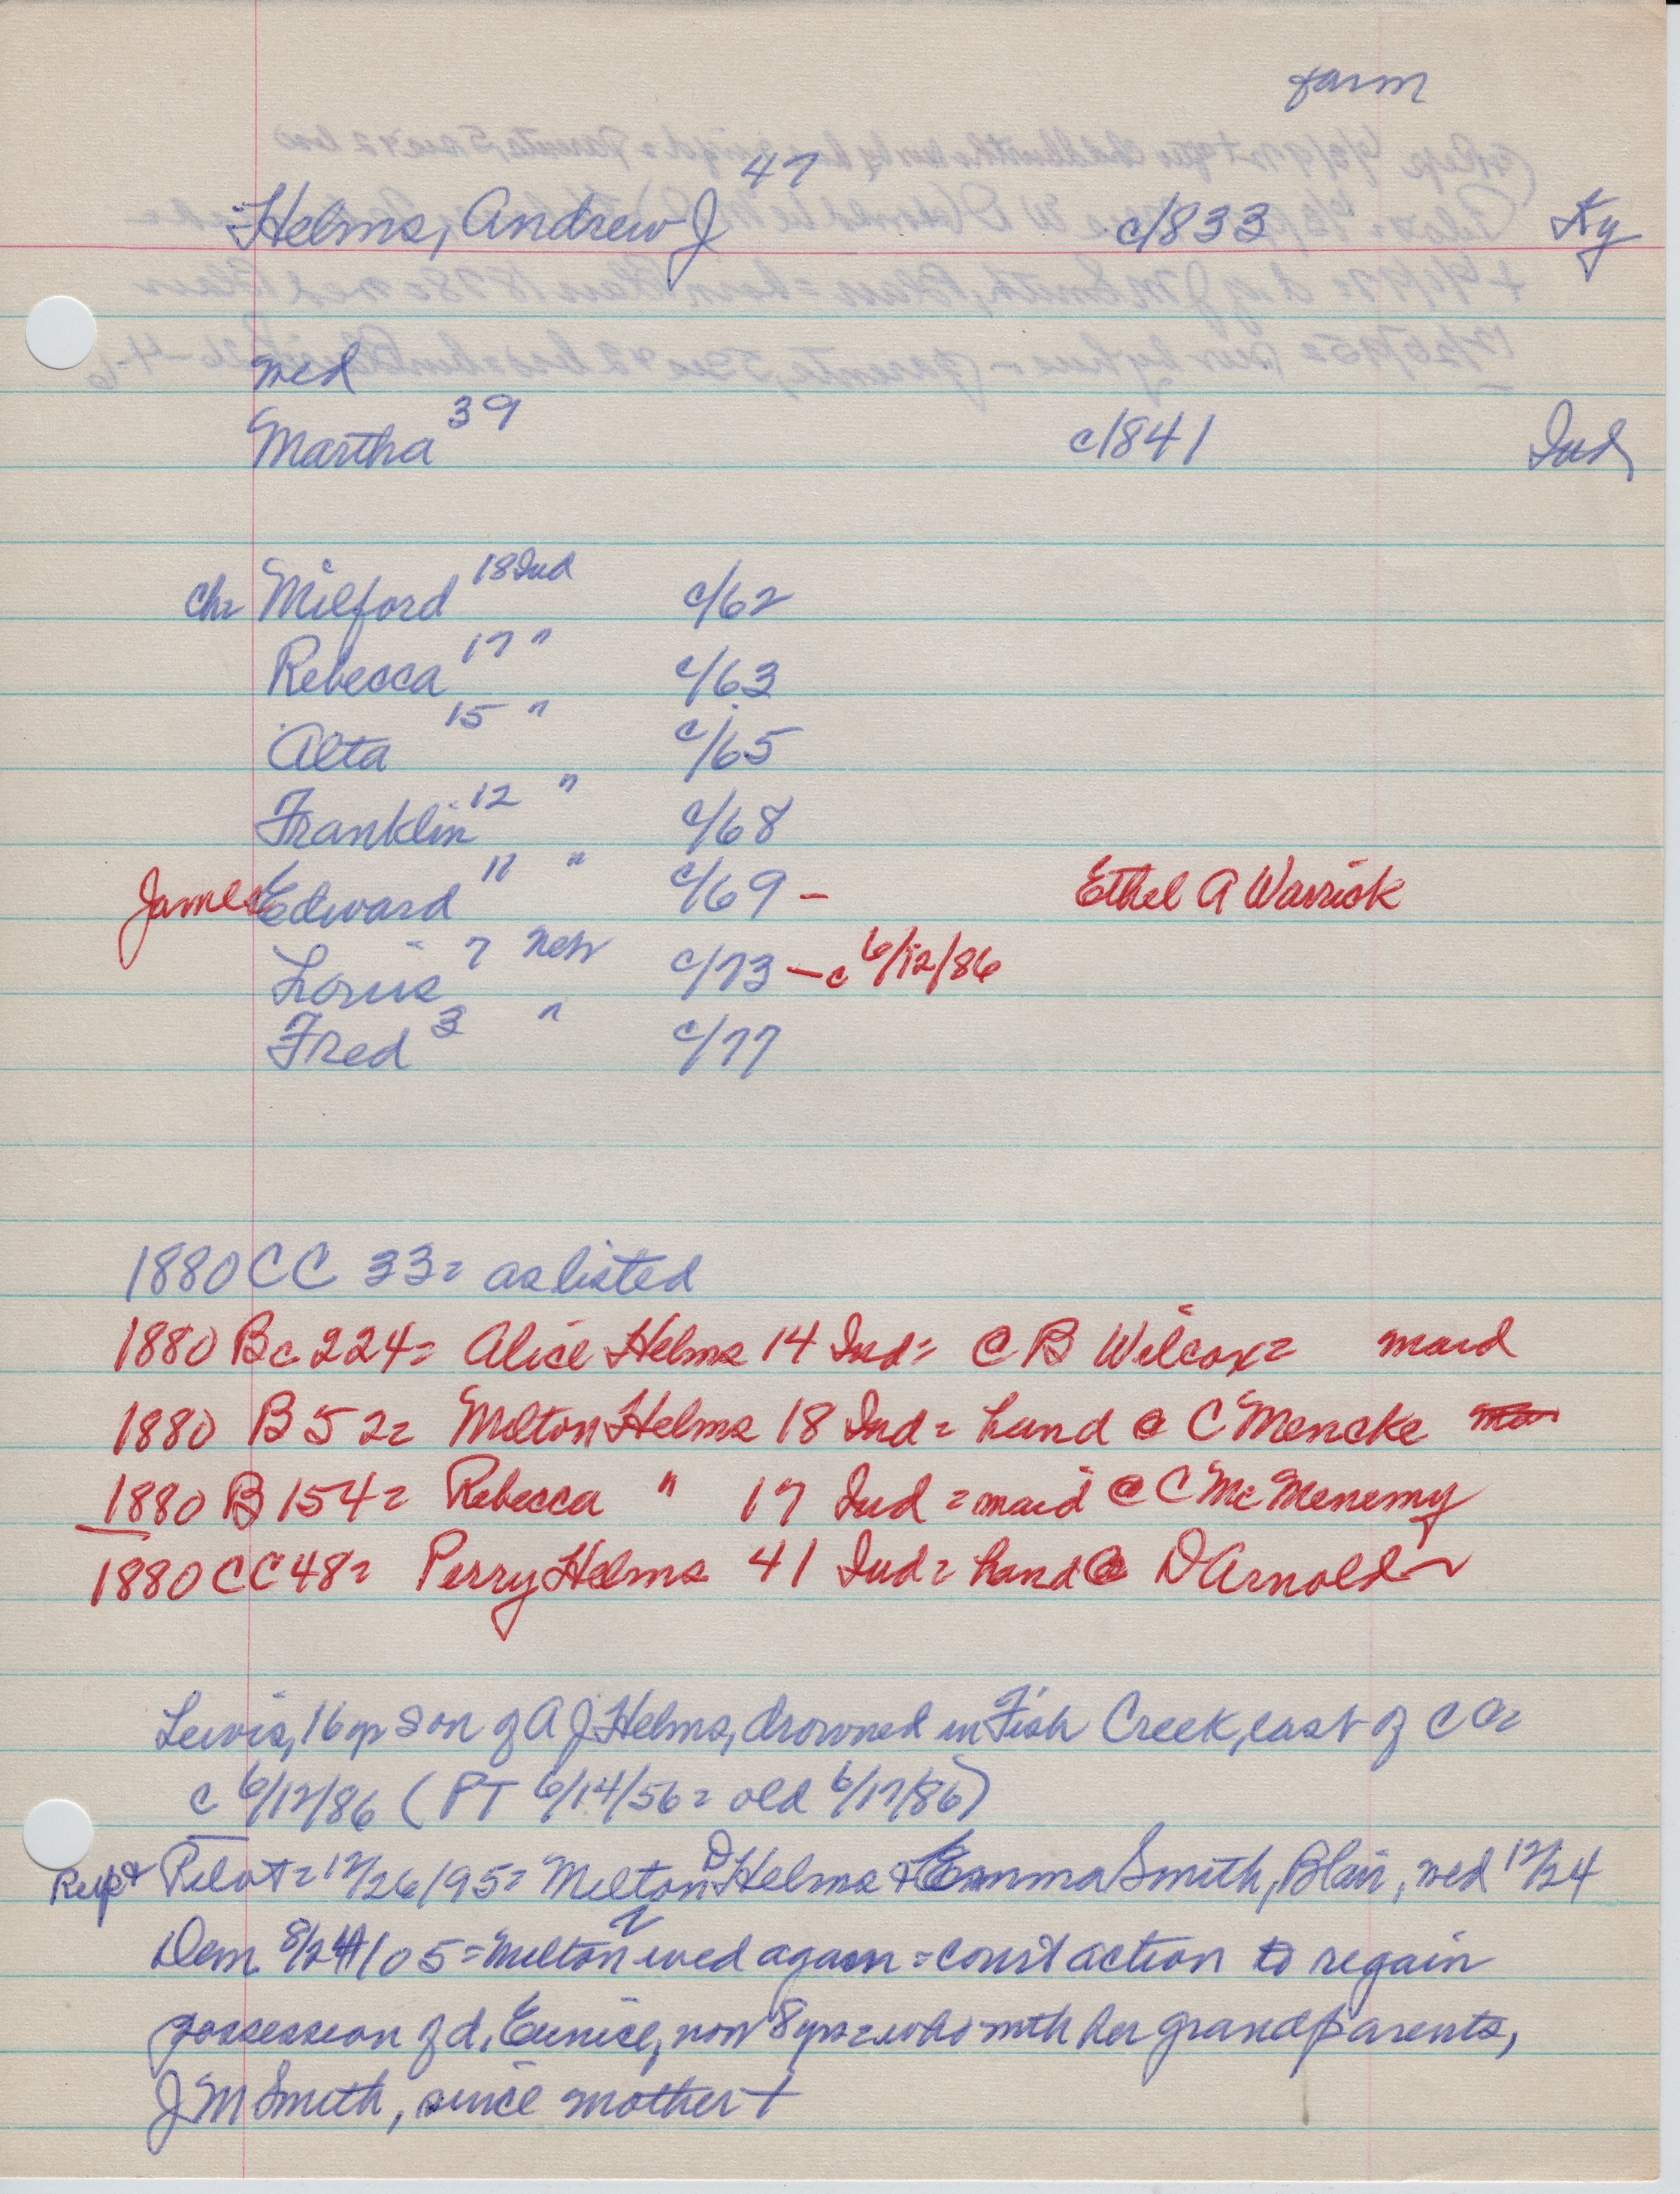 farm
47
Helms, Andrew J c1833 Ky
wed
Martha 39 c1841 Ind
ch= Milford 18 Ind c/62
Rebecca 17 " c/63
Alta 15 " c/65
Franklin 12 " c/68
James Edward 11 " c/69 - Ethel A Warrick
Louis 7 Neb c/73 - c 6/12/86
Fred 3 " c/77
1880 CC 33= as listed
1880 Bc 224= Alice Helms 14 Ind= @ B Wilcox= maid
1880 B 52= Melton Helms 18 Ind= hand @ C Mencke
1880 B 154= Rebecca " 17 Ind = maid @ C McMenemy
1880 CC 48= Perry Helms 41 Ind= hand @ D Arnold
Lewis, 16 yr son of A J Helms, drowned in Fish Creek, east of CC=
c 6/12/86 (PT 6/14/56= old 6/17/86)
Rep + Pilot= 12/26/95= Melton D Helms + Emma Smith, Blair, wed 12/24
Dem 8/24/05= Melton wed again = court action to regain
possession of d, Eunice, now 8 yrs= who with her grandparents,
J M Smith, since mother +